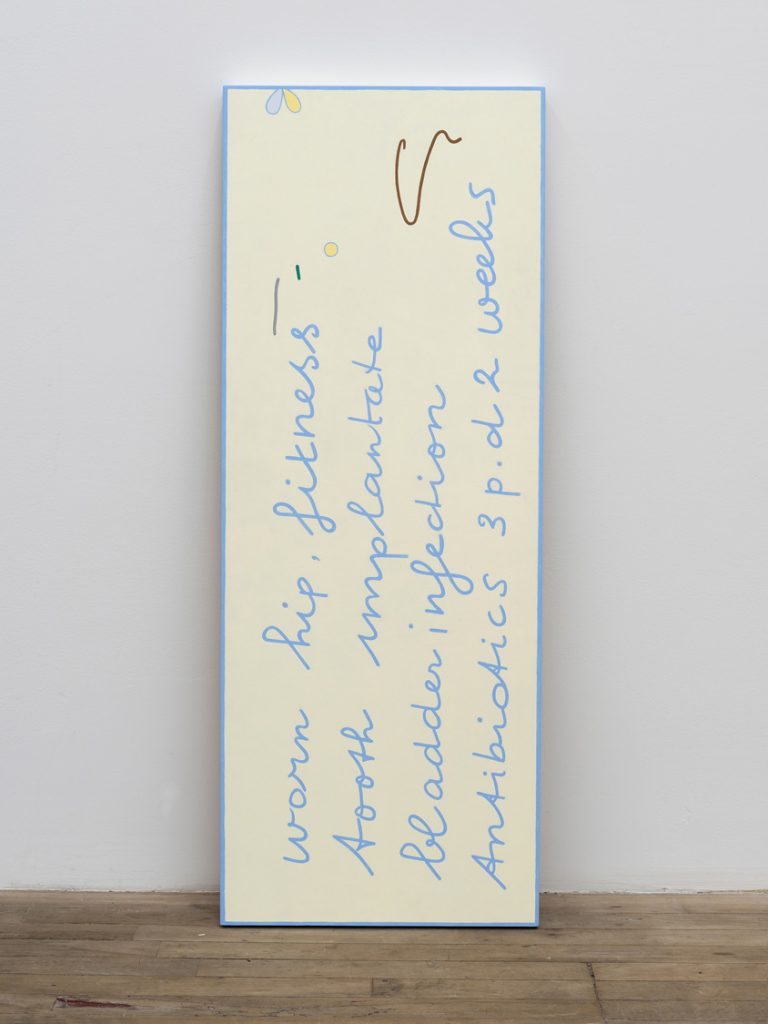 worn hip, fitness
tooth implantate
bladder infection
Antibiotics 3 p.d 2 weeks